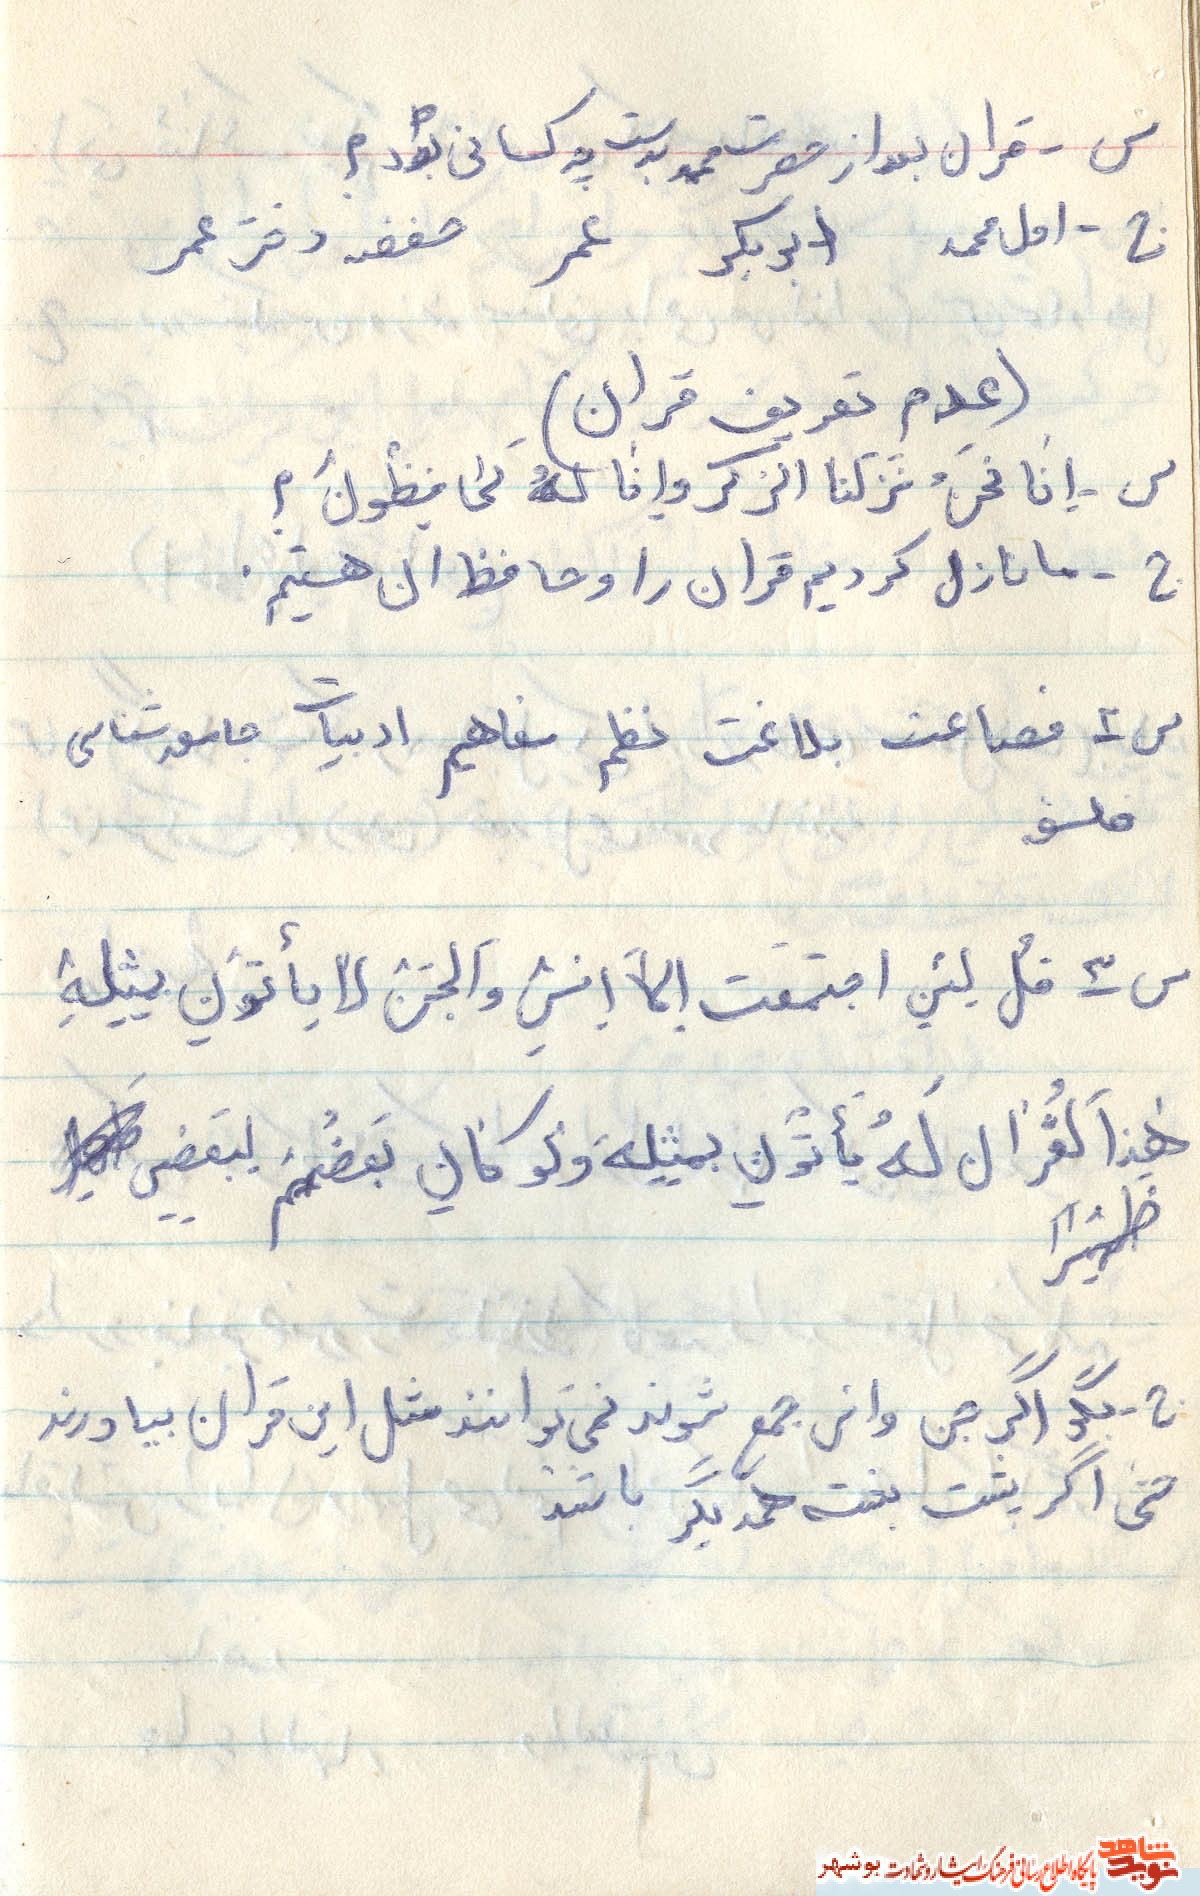 س - قران بعد از حضرت محمد بدست چه کسانی بود؟
ج - اول محمد ابوبکر عمر حفضه دختر عمر
(عدم تعریف قران)
س - اِنا نَحنُ نَزَلنا الذکر و اِنا لَهُ لَحافِظُونَ؟
ج - ما نازل کردیم قران را و حافظ ان هستیم.
س ۲ فصاحت بلاغت نظم مفاهیم ادبیات جامعه شناسی
فلسفه
س ۳ قُل لَئِن اجتمعَت الاَ اِنسِ وَالجَنَ لا یأتُون بِمثِلِهِ
هٰذاَ لقُران لَهُ یَأتُون بِمثِلِهِ وَلَو کان بَعضُهُم لبَعضٍ
ظَهیراً
ج - بگو اگر جن و انس جمع شوند نمی توانند مثل این قران بیاورند
حتی اگر پشت همدیگر باشند
نوید شاهد
پایگاه اطلاع رسانی فرهنگ ایثار و شهادت بوشهر